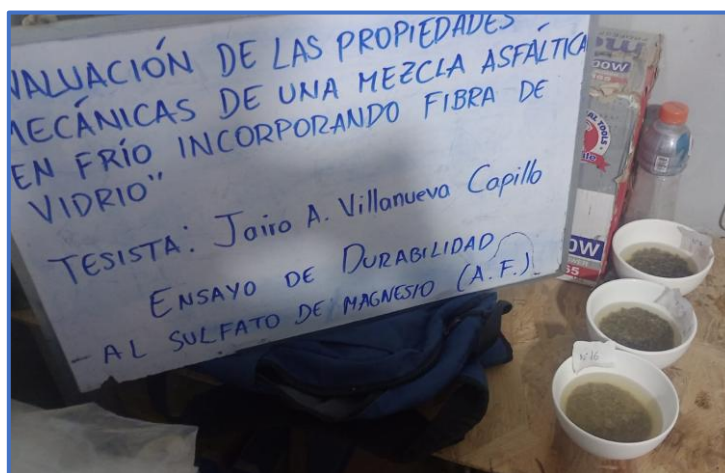 VALUACIÓN DE LAS PROPIEDADES
MECÁNICAS DE UNA MEZCLA ASFÁLTICA
EN FRÍO INCORPORANDO FIBRA DE
VIDRIO"
TESISTA: Jairo A. Villanueva Capillo
ENSAYO DE DURABILIDAD
- AL SULFATO DE MAGNESIO (A.F.)